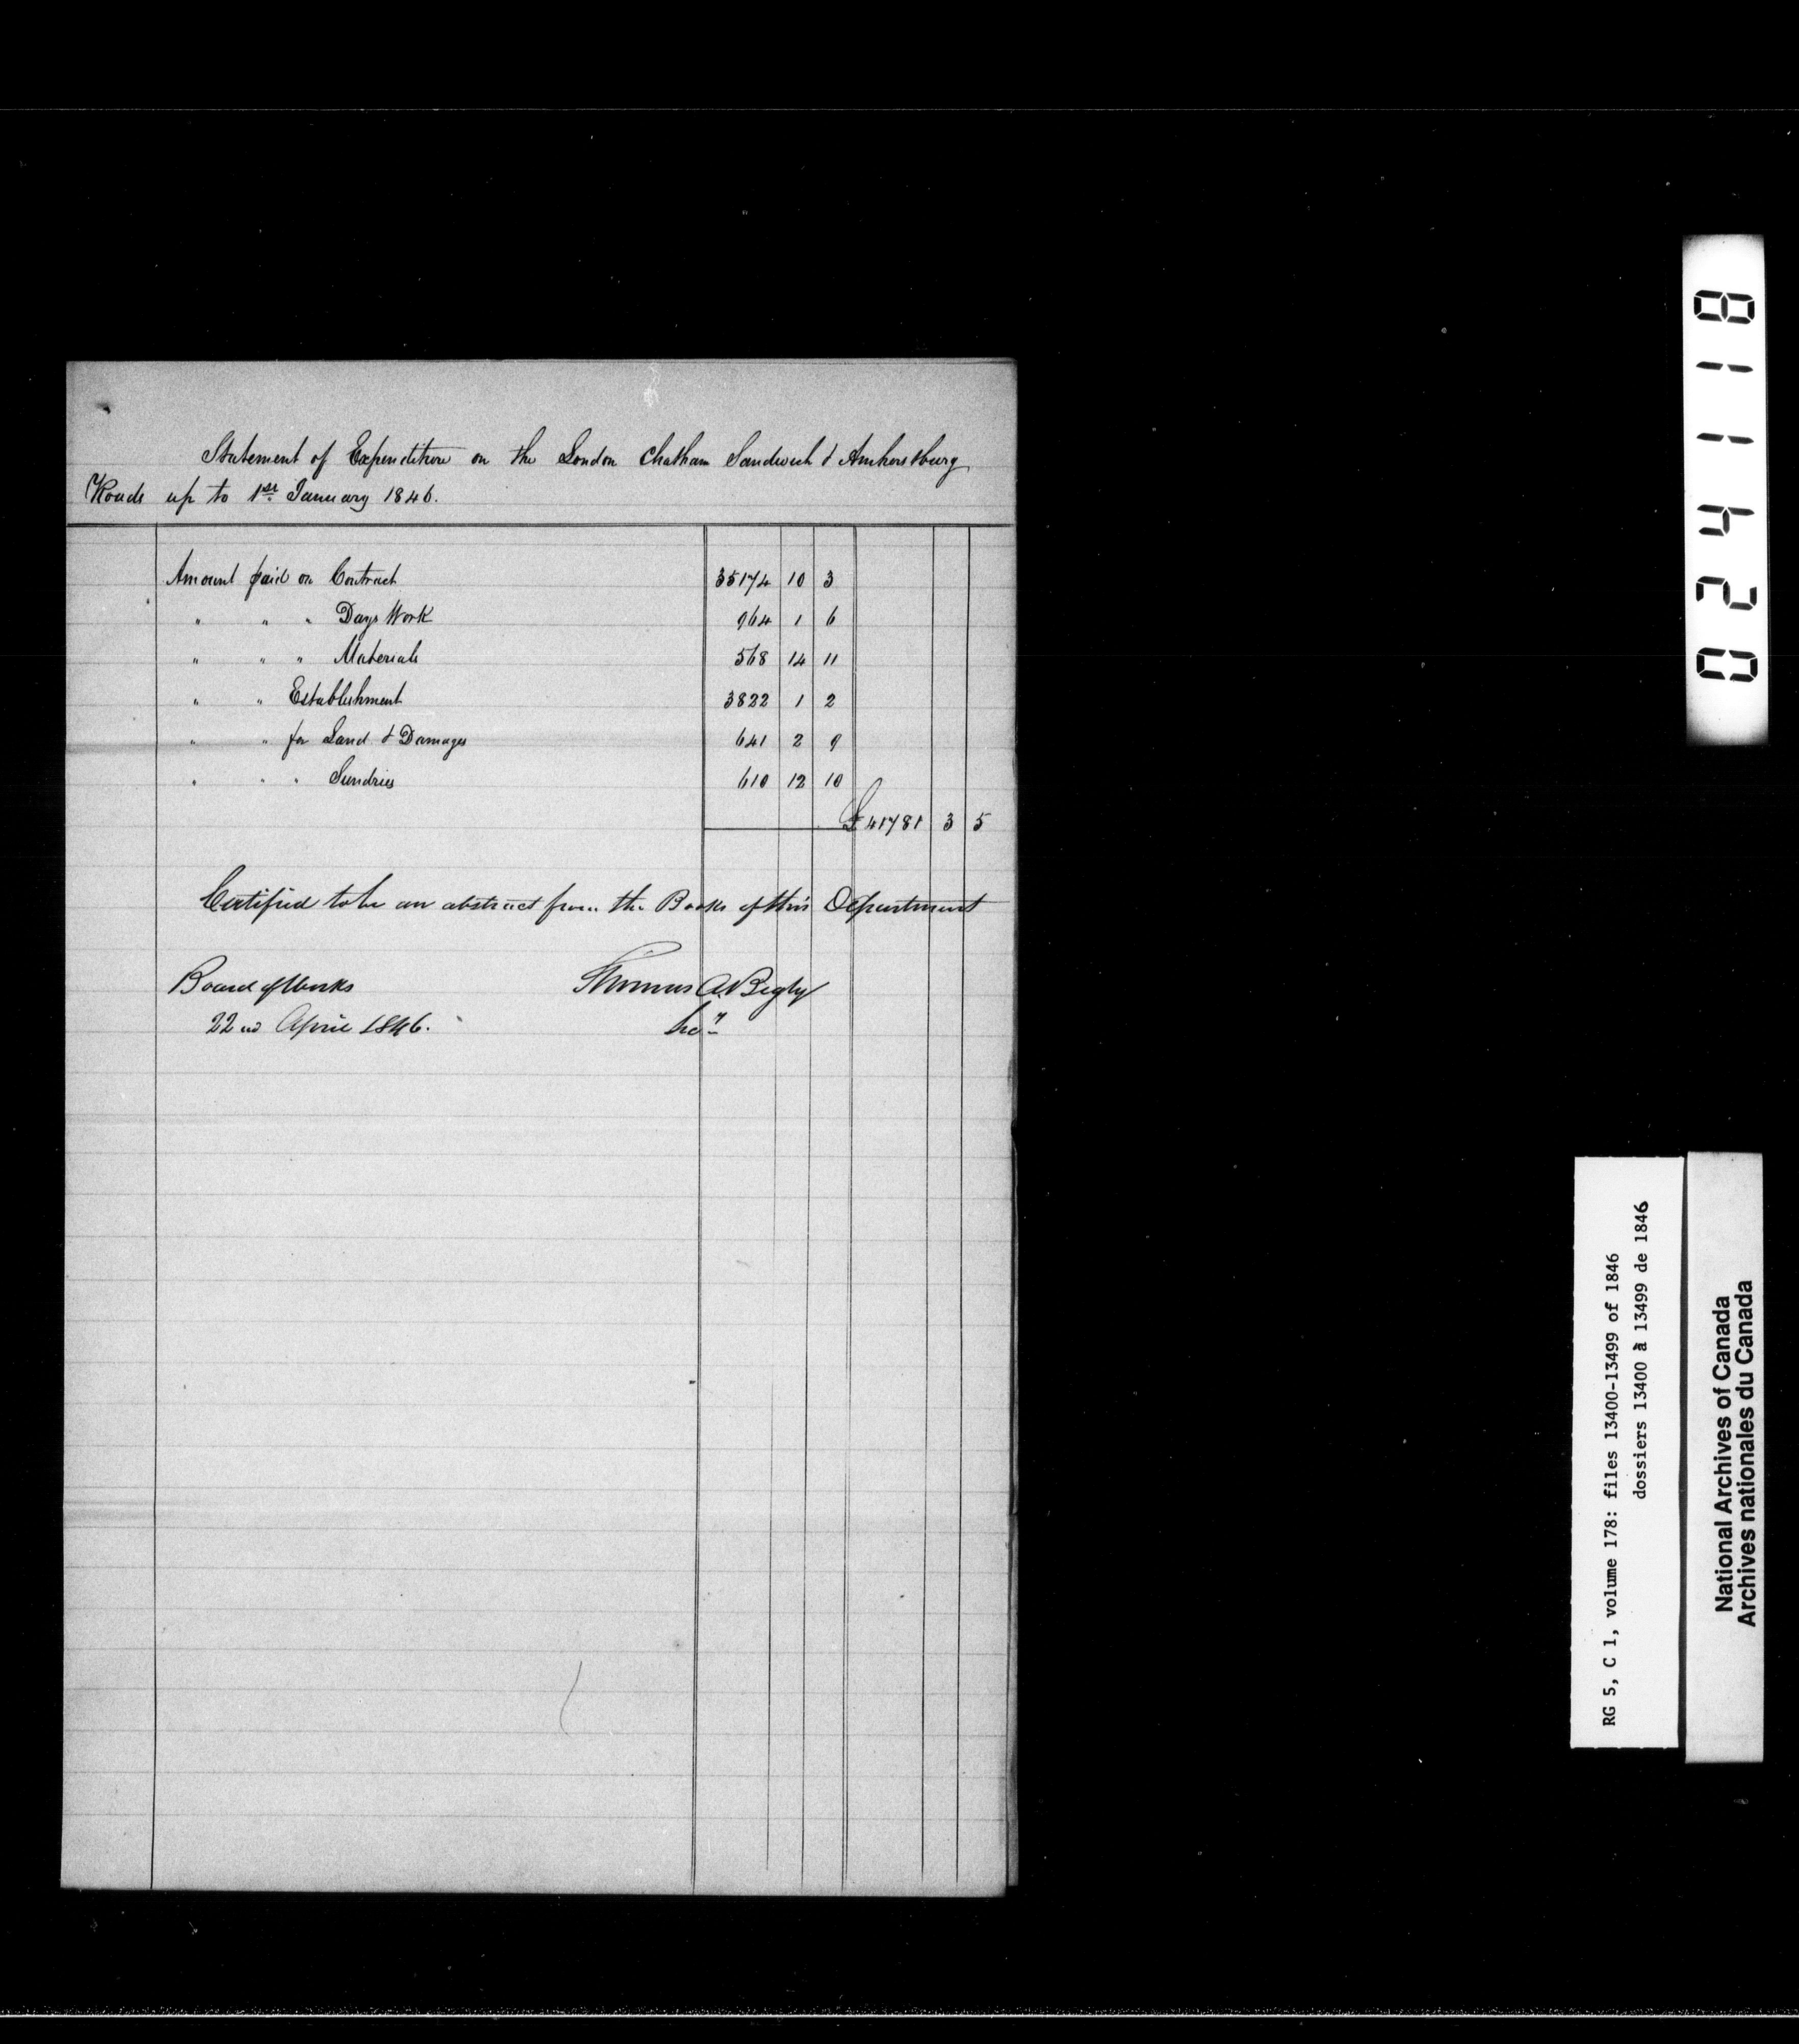 Statement of Expenditure on the London Chatham Sandwich & Amherstburg
Roads up to 1st January 1846.
Amount paid on Contract 35174 10 3
" " " Days Work 964 1 6
" " " Materials 568 14 11
" " Establishment 3822 1 2
" " for Land & Damages 641 2 9
" " " Sundries 610 12 10
£41781 3 5
Certified to be an abstract from the Books of this Department
Board of Works Thomas A. Begly
22nd April 1846. Secy
024118
RG 5, C 1, volume 178: files 13400-13499 of 1846
dossiers 13400 à 13499 de 1846
National Archives of Canada
Archives nationales du Canada